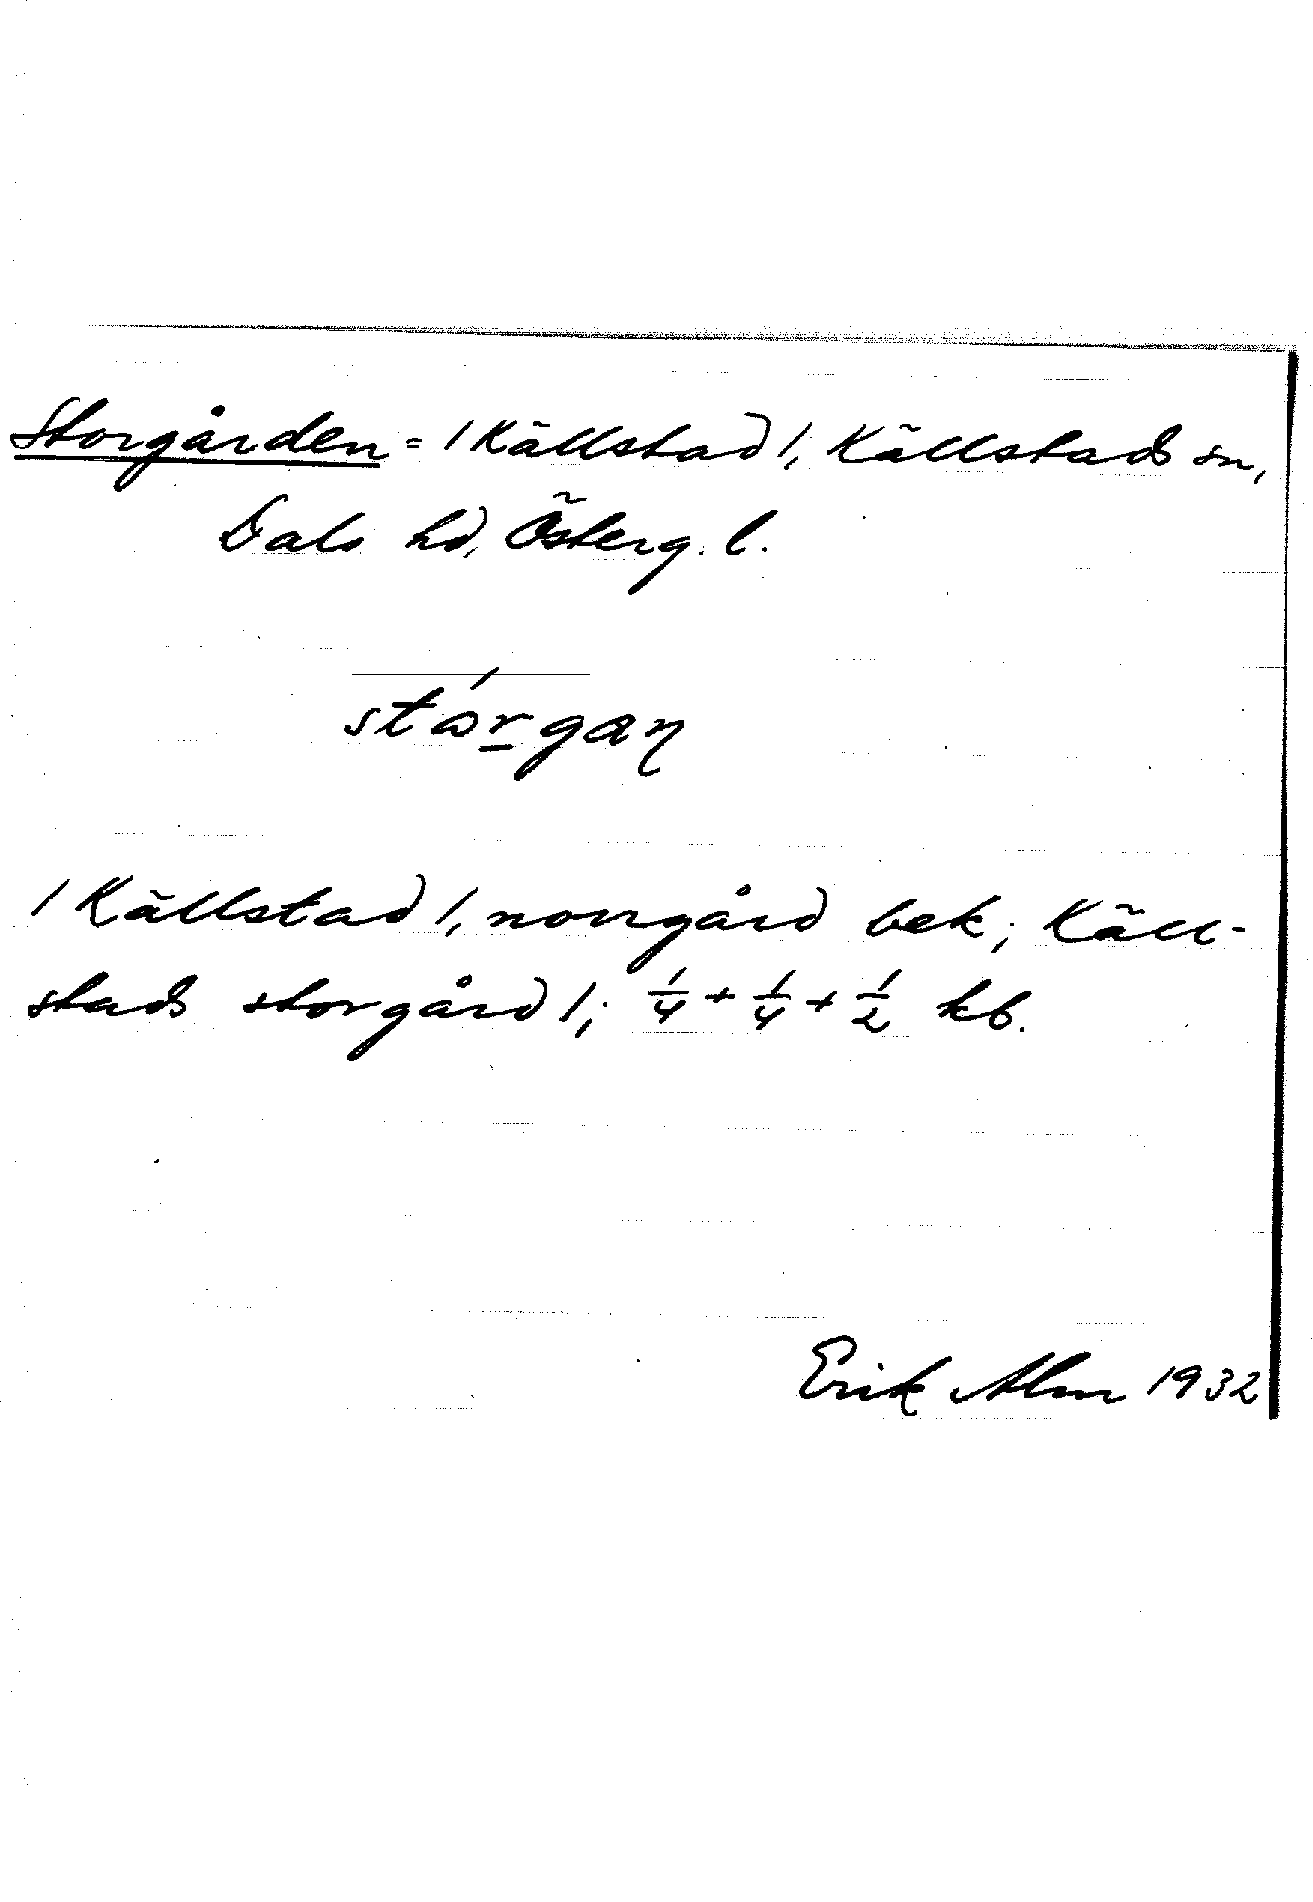 Storgården = / Källstad /, Källstads sn,
Dals hd, Österg. l.
stɷ́rgaꞃ
/ Källstad /, norrgård bek; Käll-
stads storgård /; 1/4 + 1/4 + 1/2 kb.
Erik Alm 1932